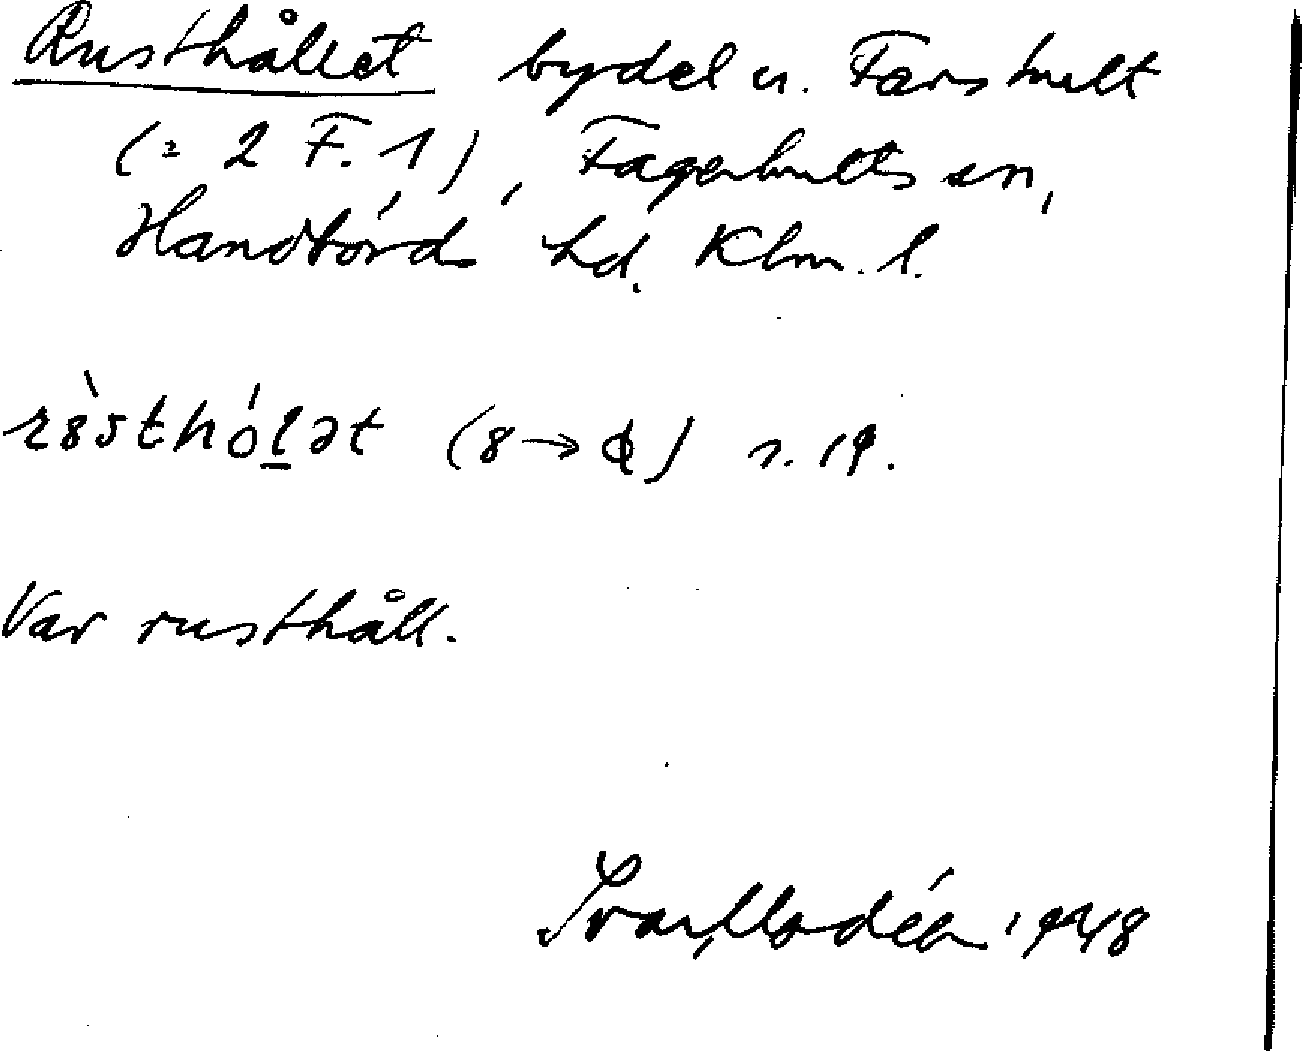 Rusthållet bydel u. Farshult
(= 2 F. 1), Fagerhults sn,
Handbörds hd. Klm. l.
(8→ s. 19.
Var rusthåll.
Ivar Modéer 1948